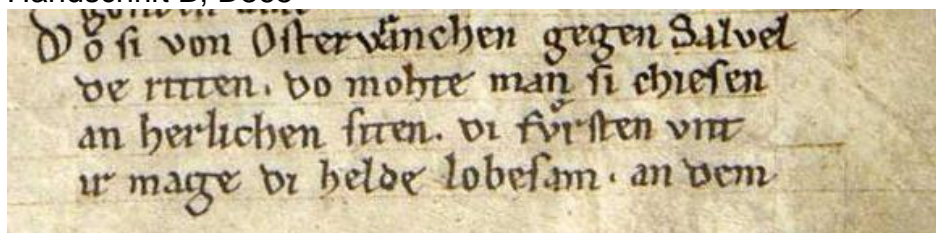 Do ſi von Oſtervranchen gegen Salvel
de ritten. do mohte man ſi chieſen
an herlichen ſiten. di fv̊rſten vnt
ir mage di helde lobeſam. an dem